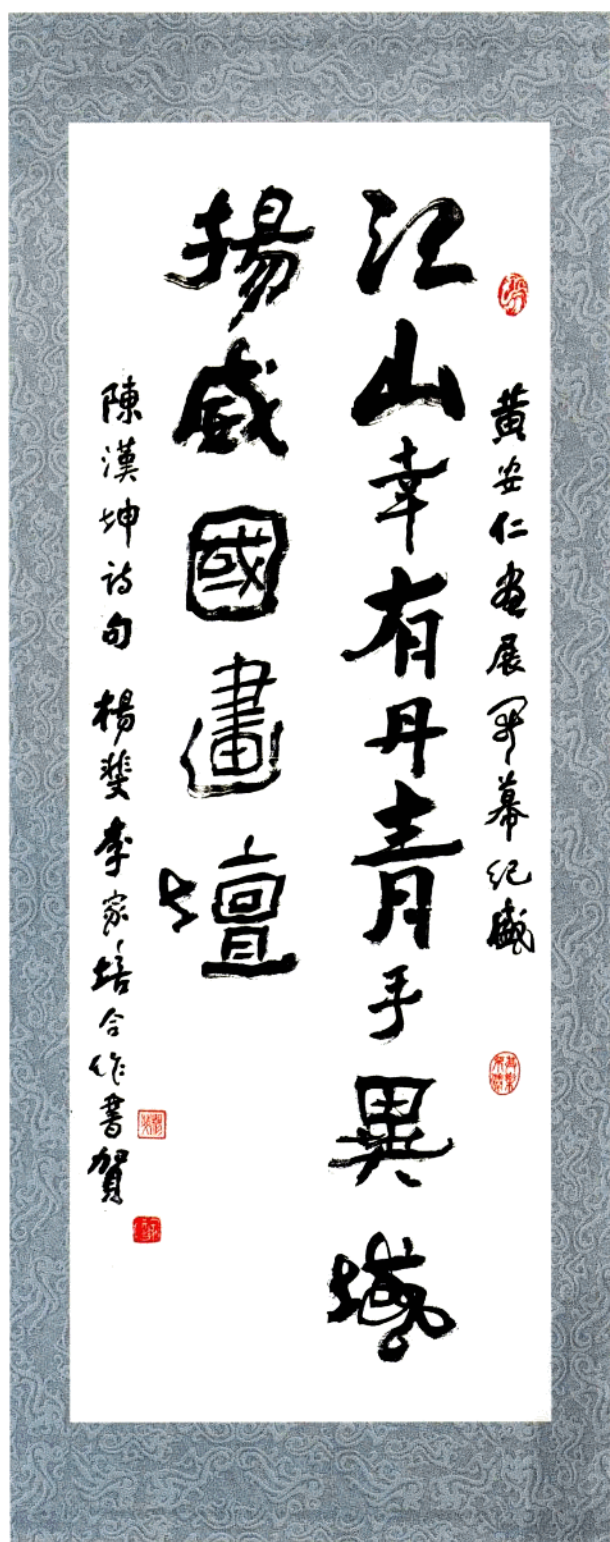 黃安仁畫展開幕紀盛
江山幸有丹青手異域
揚威國畫壇
陳漢坤詩句 楊斐李家培合作書賀